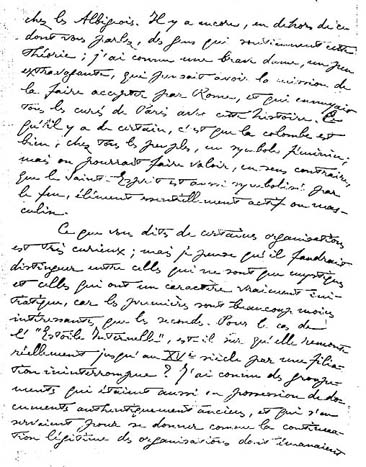 chez les Albigeois. Il y a encore, en dehors de ceux
dont vous parlez, des gens qui soutiennent cette
théorie ; j'ai connu une brave dame, un peu
extravagante, qui pensait avoir la mission de
la faire accepter par Rome, et qui ennuyait
tous les curés de Paris avec cette histoire. Ce
qu'il y a de certain, c'est que la colombe est
bien, chez tous les peuples, un symbole féminin ;
mais on pourrait faire valoir, en sens contraire,
que le Saint-Esprit est aussi symbolisé par
le feu, élément essentiellement actif ou mas-
culin.
Ce que vous dites de certaines organisations
est très curieux ; mais je pense qu'il faudrait
distinguer entre celles qui ne sont que mystiques
et celles qui ont un caractère vraiment ini-
tiatique, car les premières sont beaucoup moins
intéressantes que les secondes. Pour le cas de
l'"Estoile Internelle", est-il sûr qu'elle remonte
réellement jusqu'au XVe siècle par une filia-
tion ininterrompue ? J'ai connu des groupe-
ments qui étaient aussi en possession de do-
cuments authentiquement anciens, et qui s'en
servaient pour se donner comme la continua-
tion légitime des organisations dont émanaient